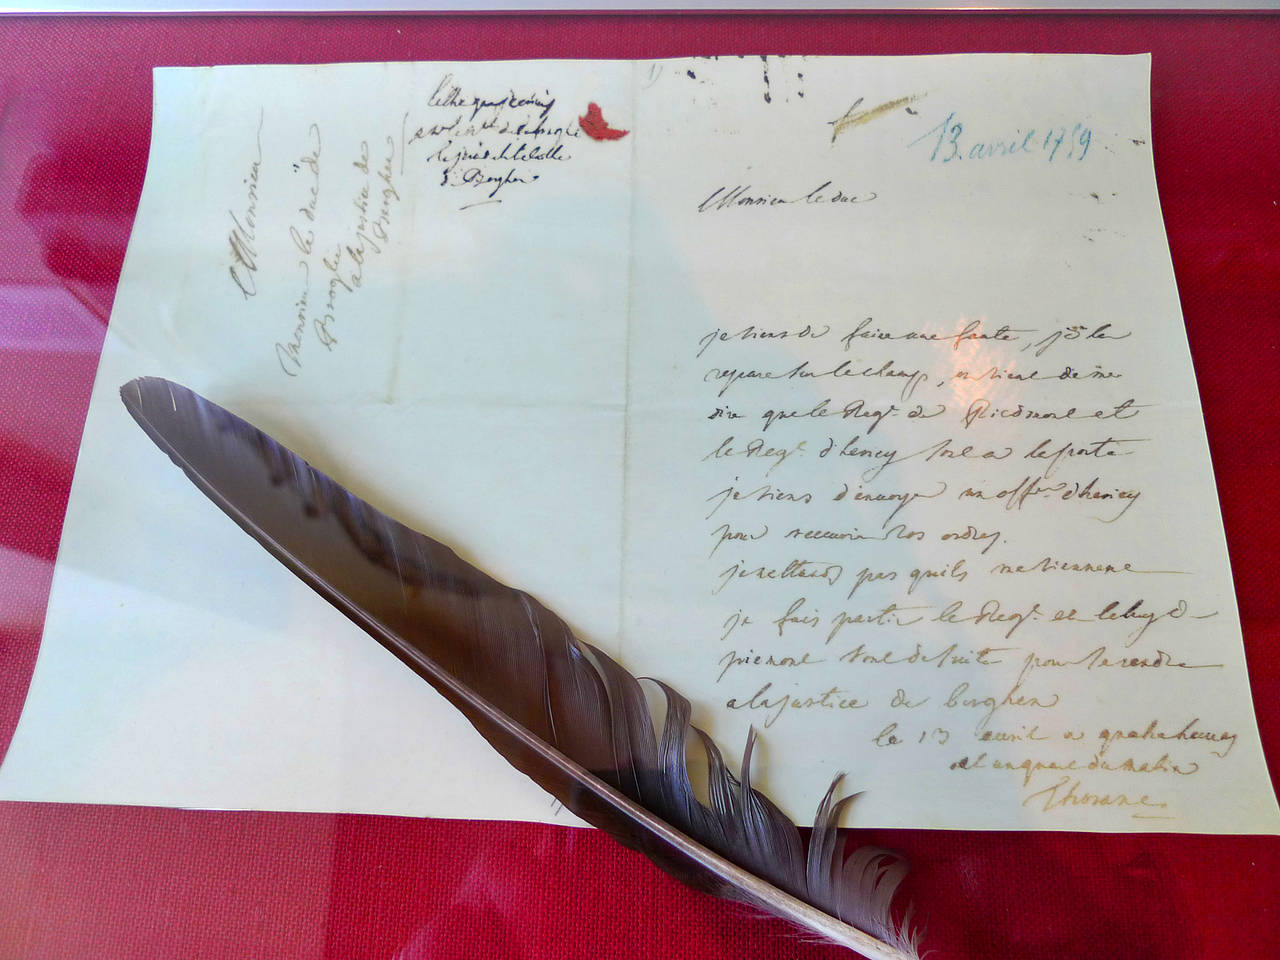 Monsieur
monsieur le duc de
Broglie
a la justice de
Berghen
de Berghen
13 avril 1759
Monsieur le duc
je viens de faire une faute, je la
repare sur le champ, on vient de me
dire que le Regt. de Piedmont et
le Regt. d'henicy sont a la porte
je viens d'envoyer un offr. d'henicy
pour recevoir vos ordres.
je nattend pas quils me viennent
je fais partir le Regt. et
piemont tout de suite pour se rendre
a la justice de berghen
le 13 avril a quatre heures
et un quart du matin
Thorane